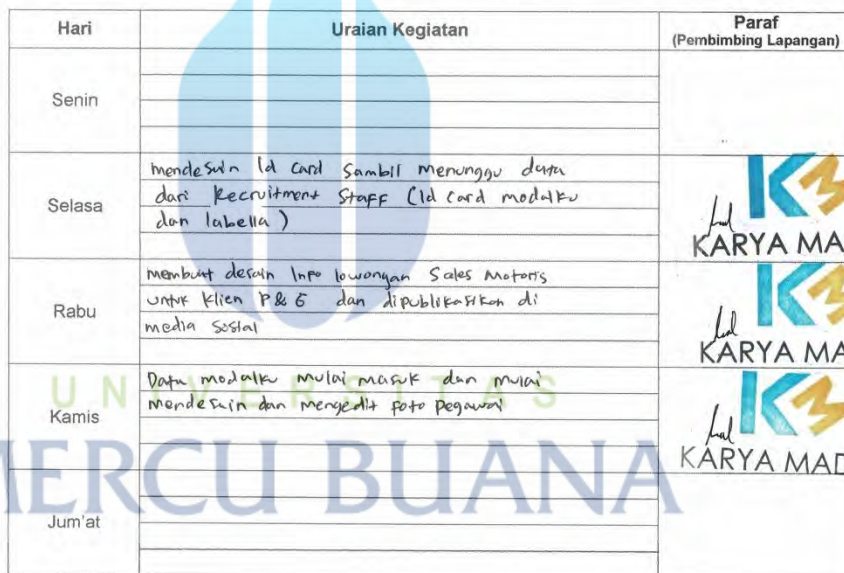 Hari Uraian Kegiatan Paraf
(Pembimbing Lapangan)
Senin
Selasa
mendesain Id Card Sambil menunggu data
dari Recruitment Staff (Id Card modalku
dan labella)
KM
KARYA MA
Rabu
membuat desain Info lowongan Sales Motoris
untuk klien P&G dan dipublikasikan di
media Sosial
KM
KARYA MA
Kamis
Data modalku mulai masuk dan mulai
mendesain dan mengedit foto pegawai
KM
KARYA MAD
UNIVERSITAS
MERCU BUANA
Jum'at